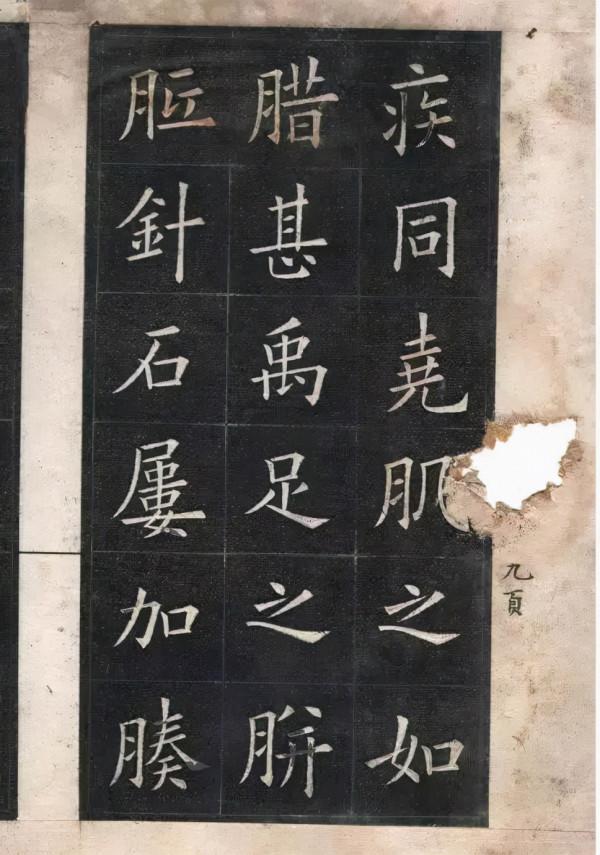 九頁
疾同堯肌之如
腊甚禹足之胼
胝針石屢加腠